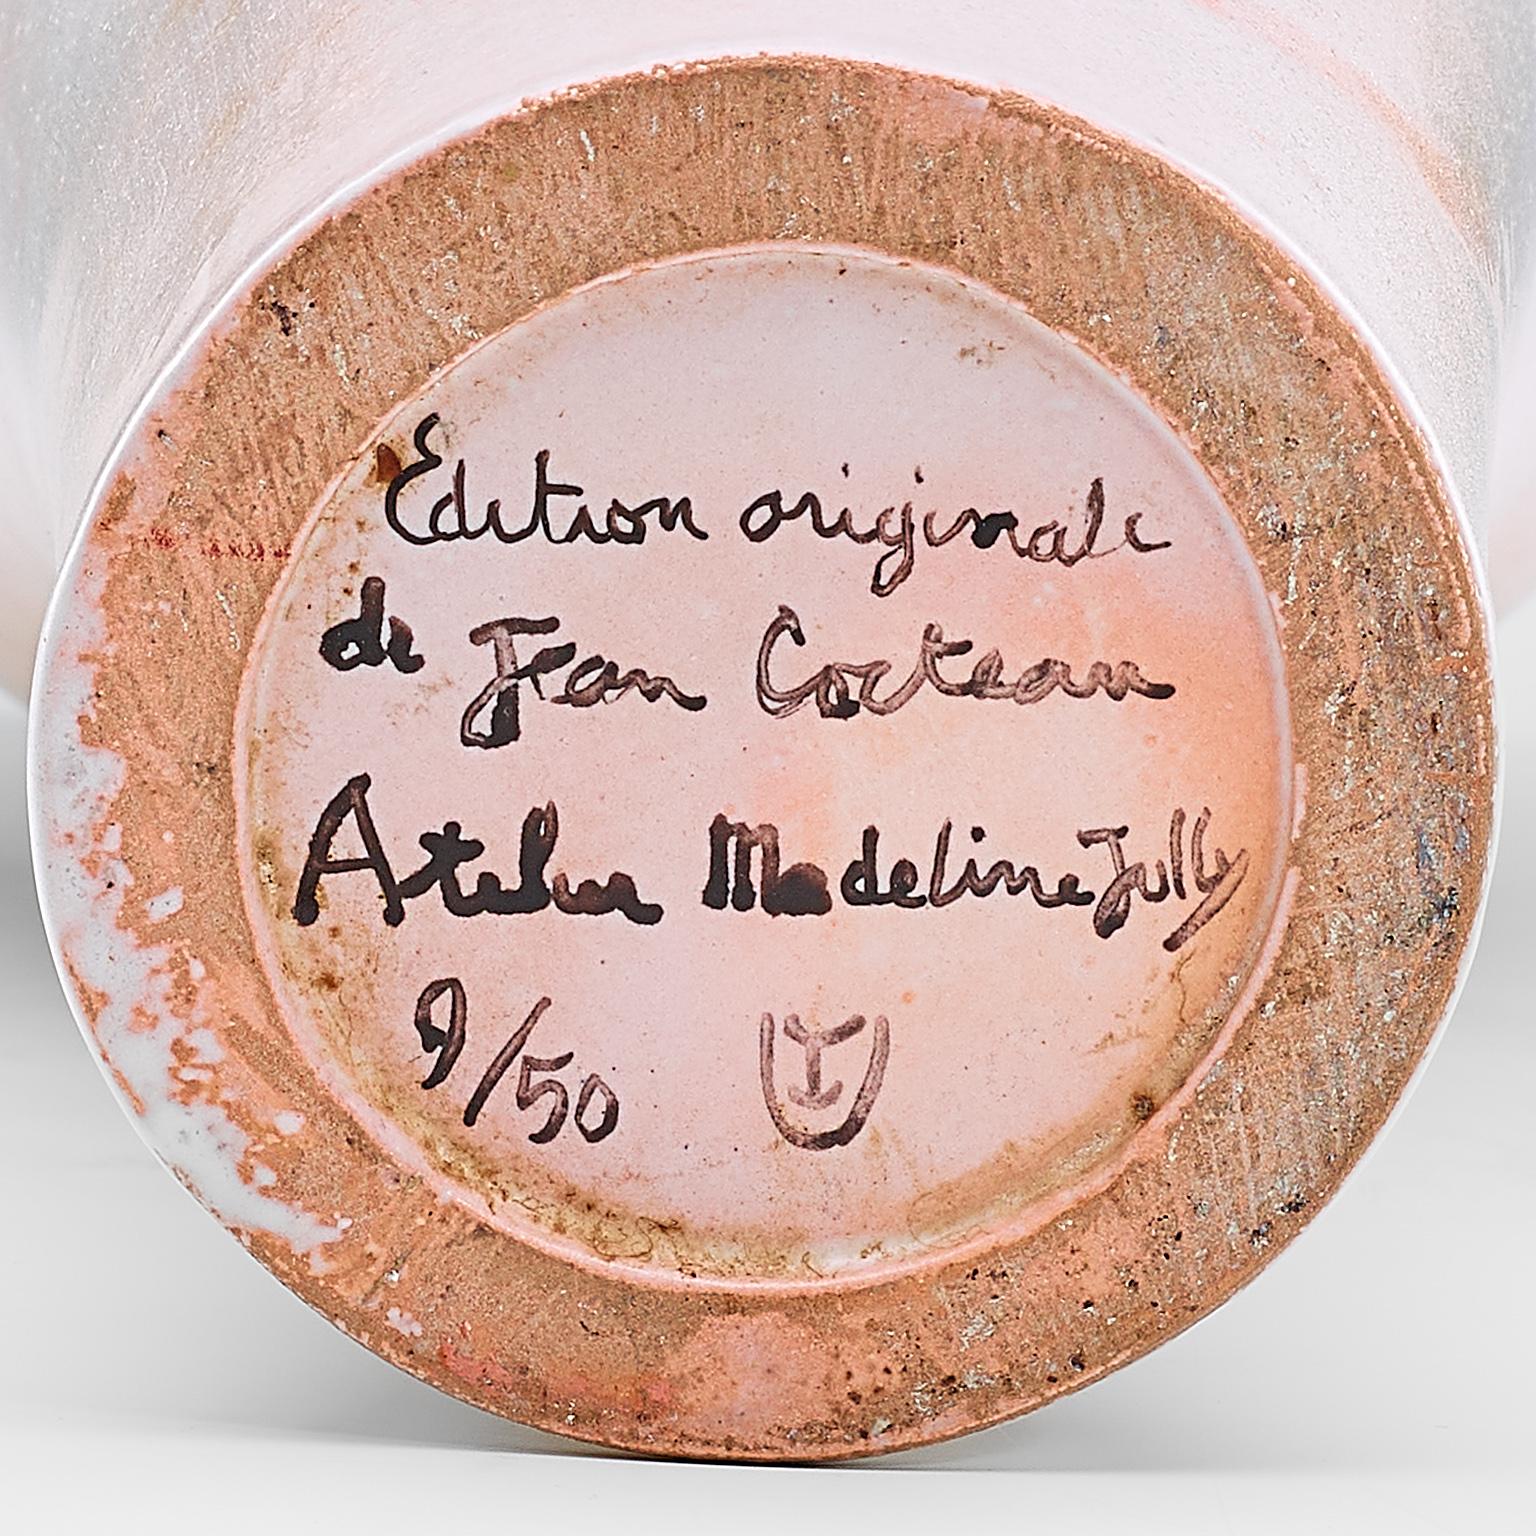 Edition originale
de Jean Cocteau
Atelier Madeline Jolly
9/50